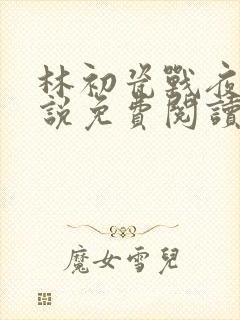 林初瓷戰夜
說免費閱讀
魔女雪兒